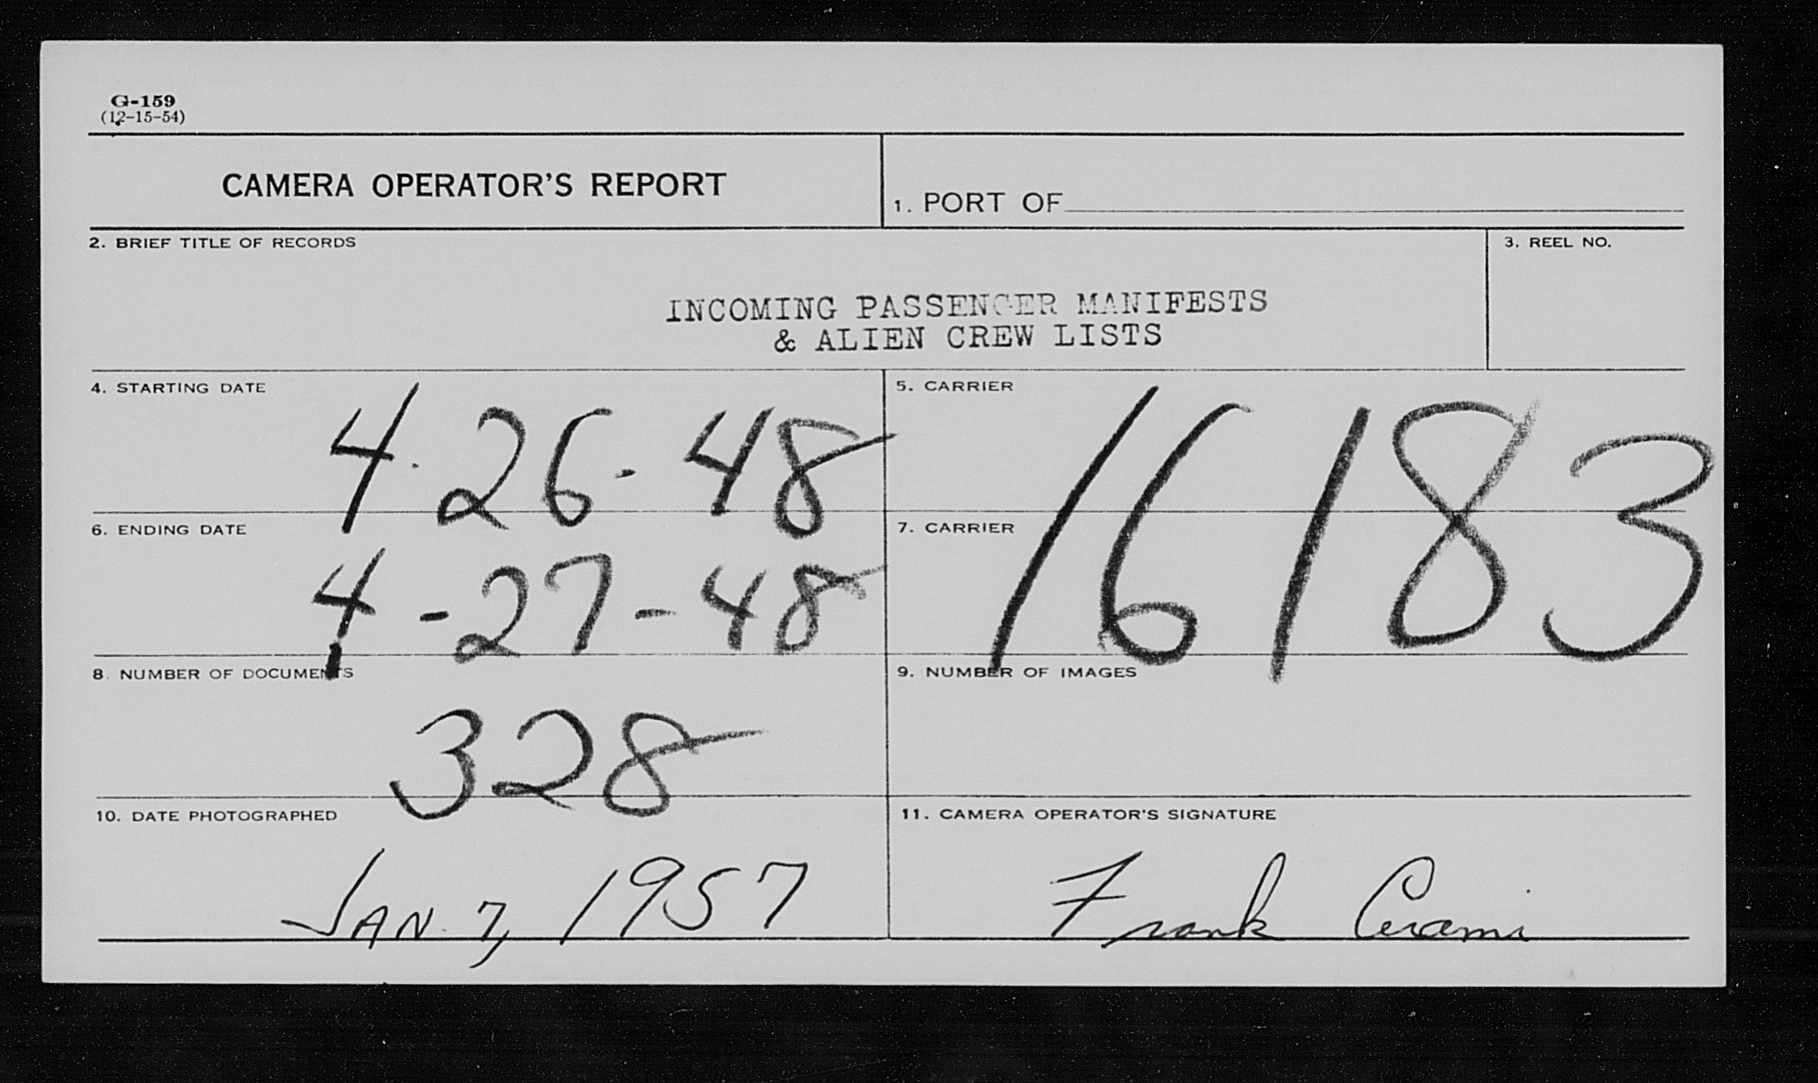 G-159
(12-15-54)
CAMERA OPERATOR'S REPORT
1. PORT OF
2. BRIEF TITLE OF RECORDS
3. REEL NO.
INCOMING PASSENGER MANIFESTS
& ALIEN CREW LISTS
4. STARTING DATE
4-26-48
5. CARRIER
16183
6. ENDING DATE
4-27-48
7. CARRIER
8. NUMBER OF DOCUMENTS
328
9. NUMBER OF IMAGES
10. DATE PHOTOGRAPHED
JAN. 7, 1957
11. CAMERA OPERATOR'S SIGNATURE
Frank Cerami